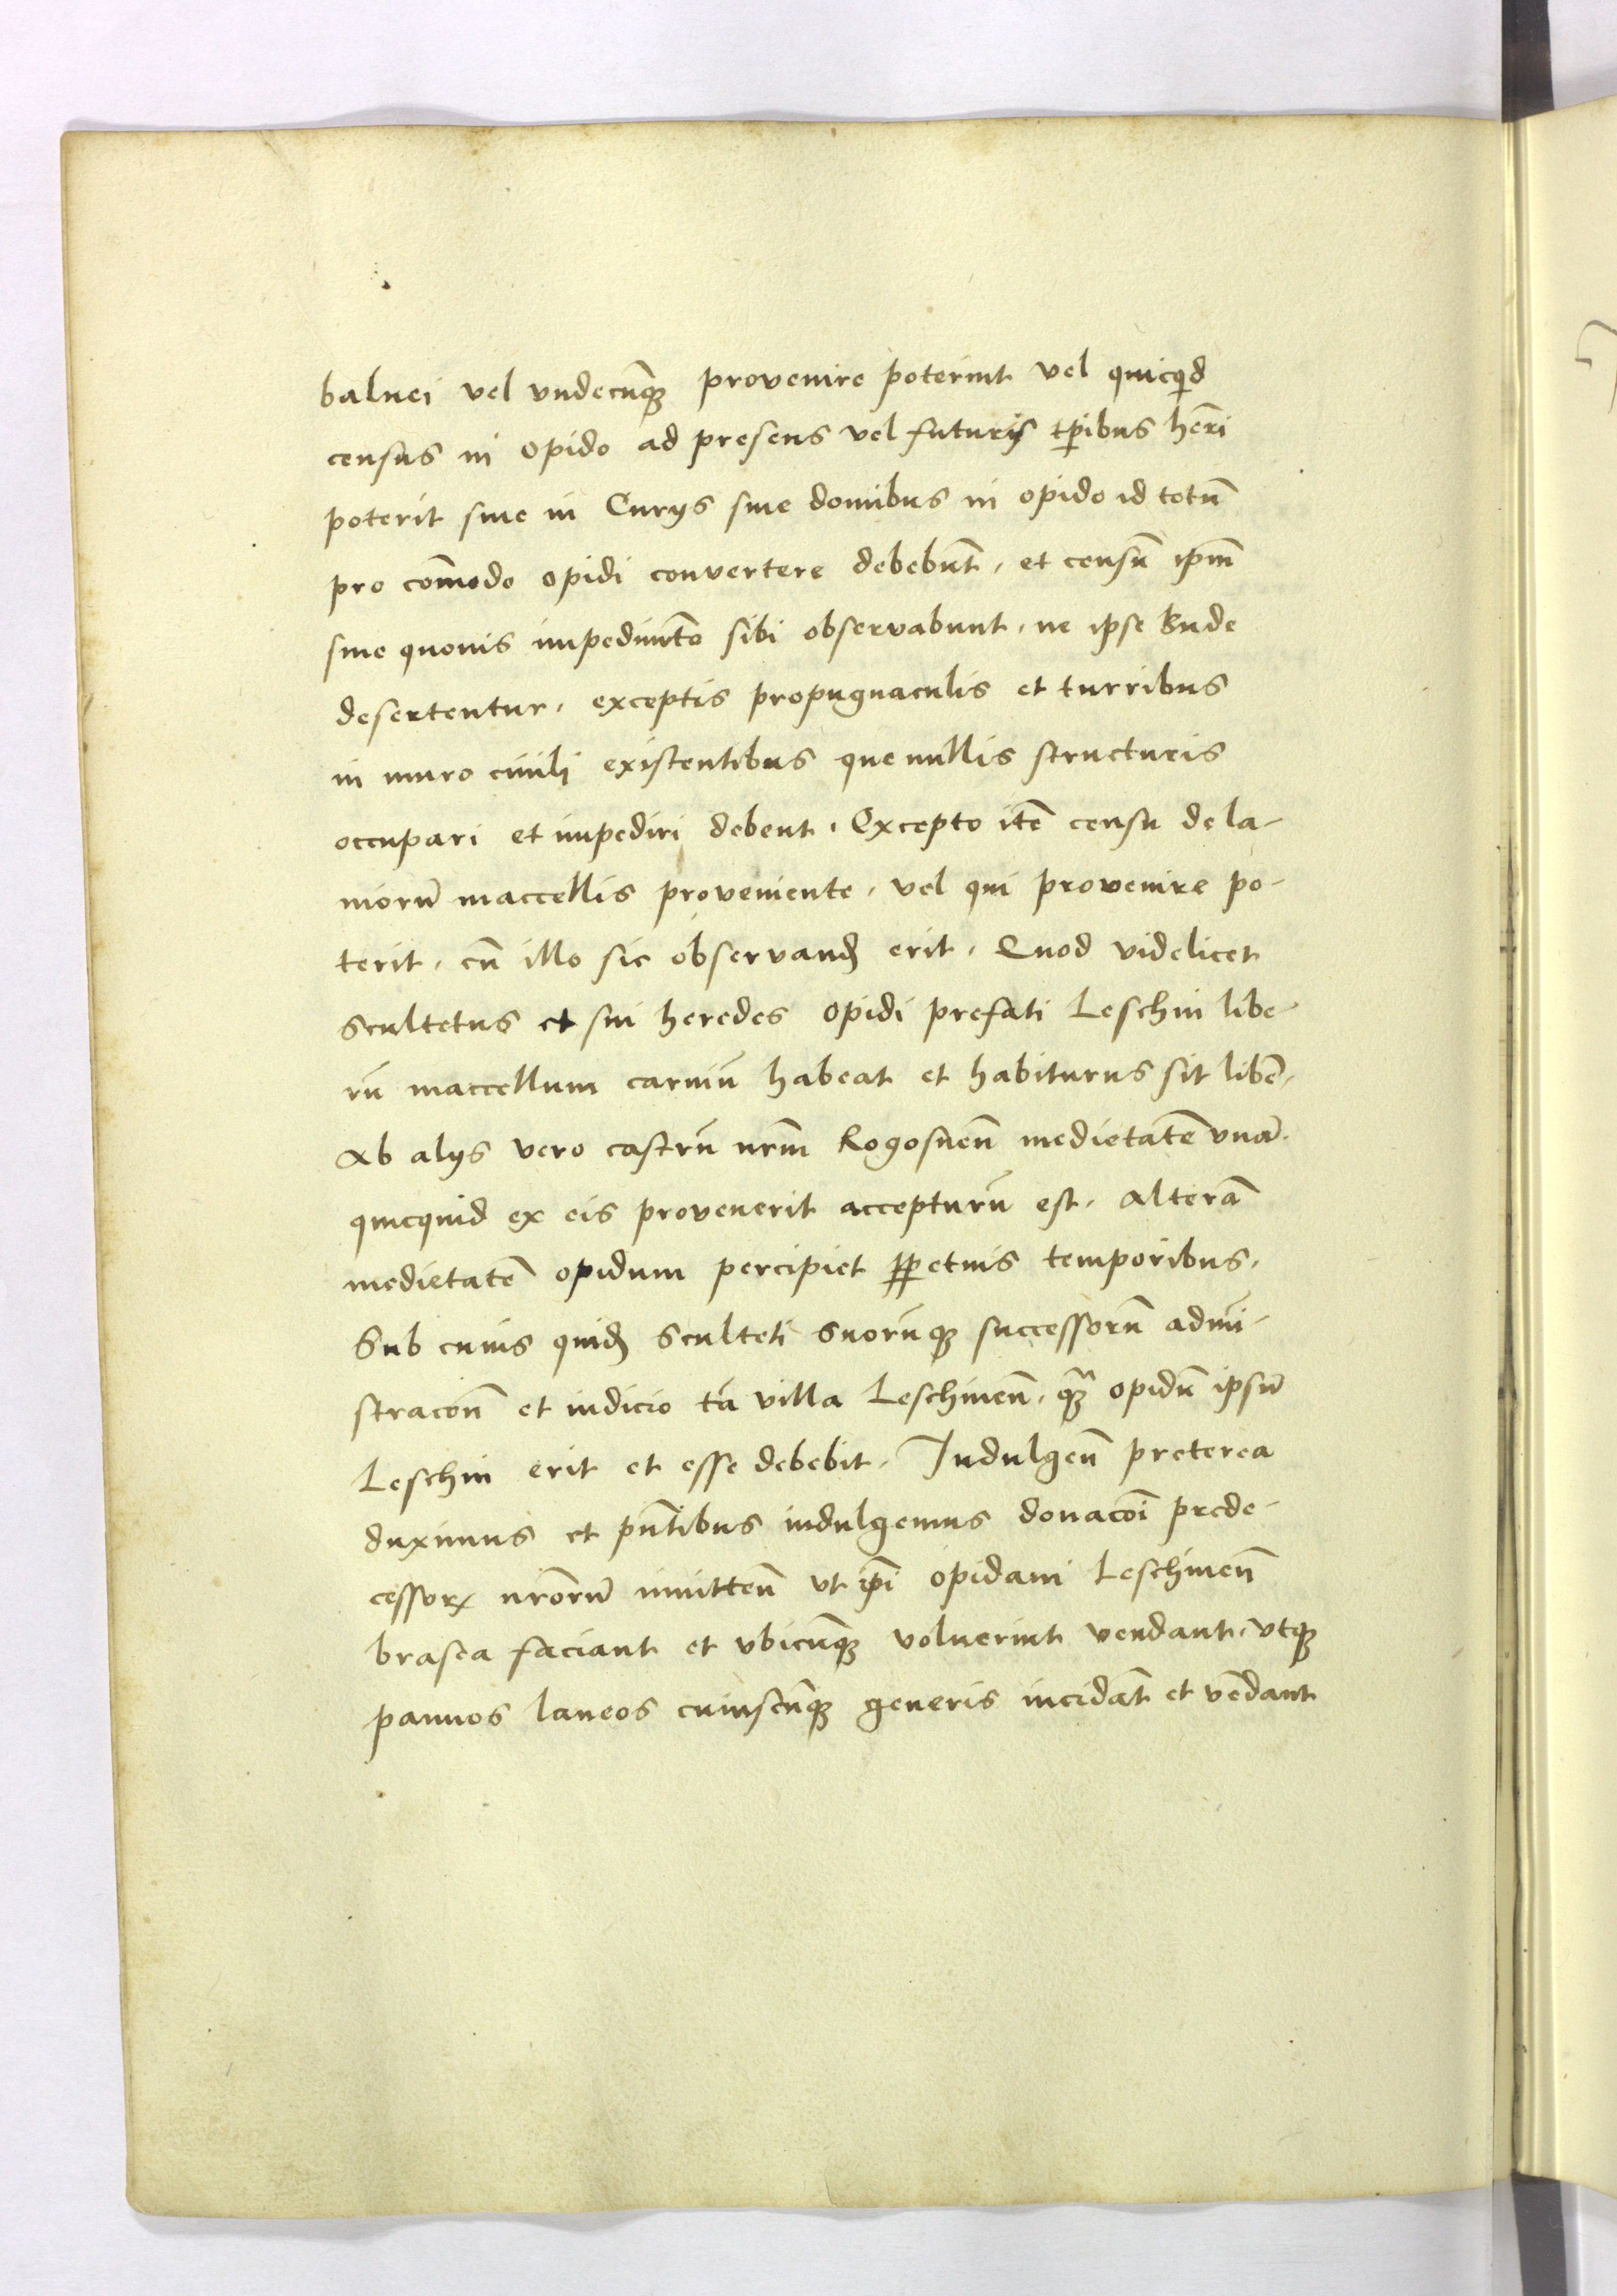 balnei vel vndecūqꝫ provenire poterint vel quicqid
census in opido ad presens vel futuris tp̄ibus hēri
poterit siue in Curijs siue domibus in opido id totū
pro cōmodo opidi convertere debebūt, et censū ip̄m
sine quouis impedimēto sibi observabunt, ne ipse Bude
desertentur, exceptis propugnaculis et turribus
in muro ciuili existentibus que nullis structuris
occupari et impediri debent. Excepto itē censu de la-
niorū maccellis proveniente, vel qui provenire po-
terit, cū illo sic observand̄ erit, Quod videlicet
Scultetus et sui heredes opidi prefati Leschin libe-
rū maccellum carniū habeat et habiturus sit liberē,
Ab alijs vero castrū nr̄m Rogosnen̄ medietatē vnā
quicquid ex eis provenerit accepturū est, alterā
medietatē opidum percipiet ꝑpetuis temporibus,
Sub cuius quid̄ Sculteti suorūqꝫ successorū admi-
stracōn̄ et iudicio tā villa Leschinen̄, qꝫ̄ opidū ipsū
Leschin erit et esse debebit, Indulgen̄ preterea
duximus et pn̄tibus indulgemus donacōi prede-
cessorꝝ nr̄orū innitten̄ vt ip̄i opidani Leschinen̄
brasea faciant et vbicūqꝫ voluerint vendant, vtqꝫ
pannos laneos cuiuscūqꝫ generis incidāt et vēdant